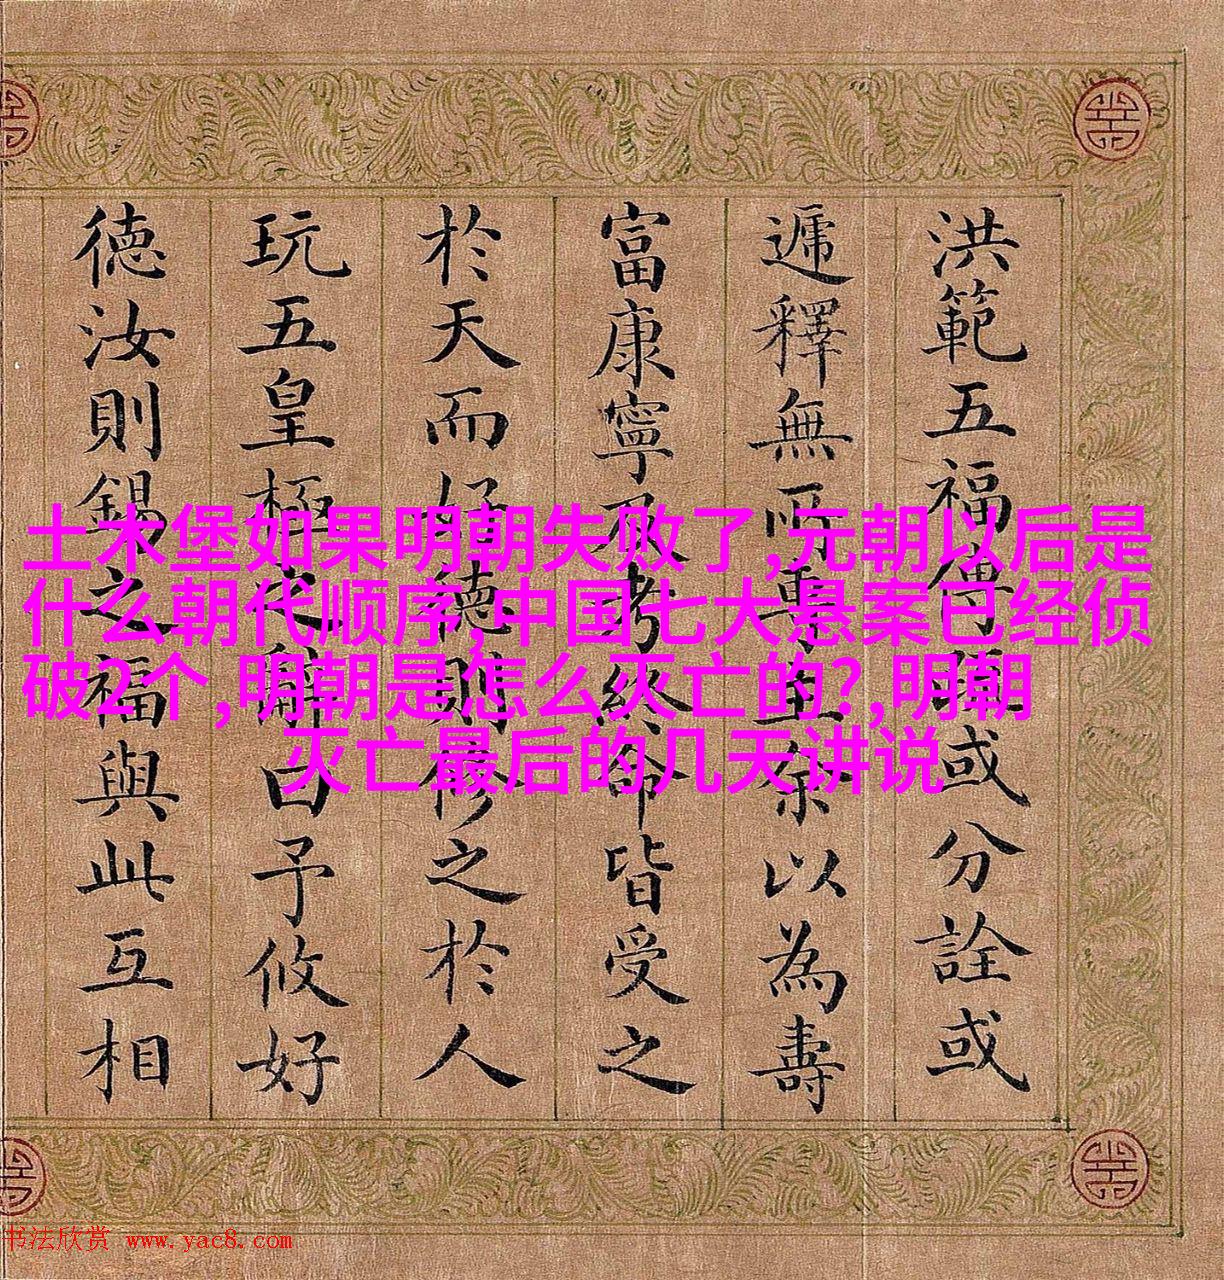 土木堡如果明朝失败了,元朝以后是
什么朝代顺序,中国七大悬案已经侦
破2个,明朝是怎么灭亡的?,明朝
灭亡最后的几天讲说
洪範五福傳或分詮或
遞釋無所專主余以為壽
富康寧及考終命皆受之
於天而好德則修之於人
玩五皇極之辭曰予攸好
德汝則錫之福與此互相
书法欣赏 www.yac8.com